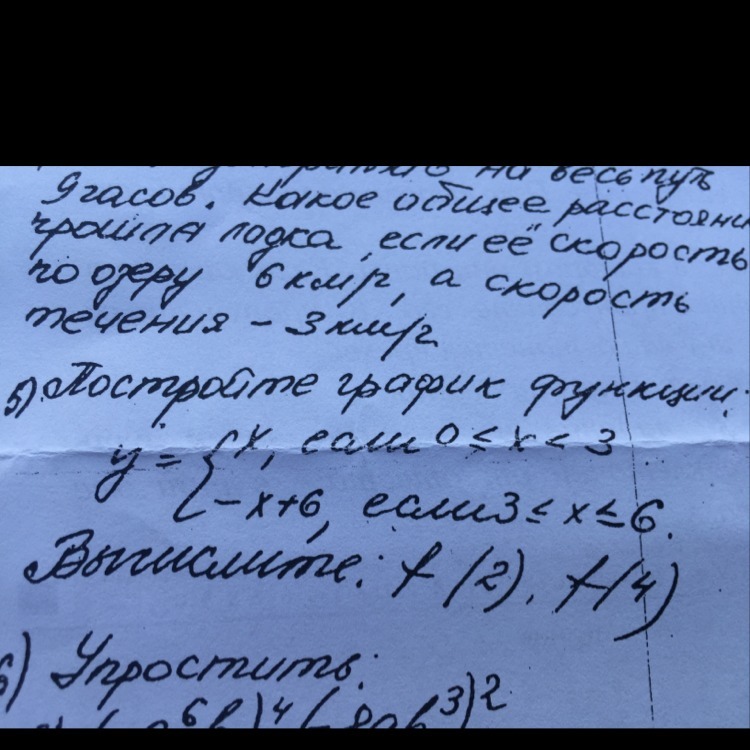 на весь путь
9 часов. Какое общее расстояни
прошла лодка, если её скорость
по озеру 6 км/г, а скорость
течения - 3 км/г
5) Постройте график функции:
y = { x, если 0 ≤ x < 3
-x+6, если 3 ≤ x ≤ 6.
Вычислите: f(2), f(4)
6) Упростить: